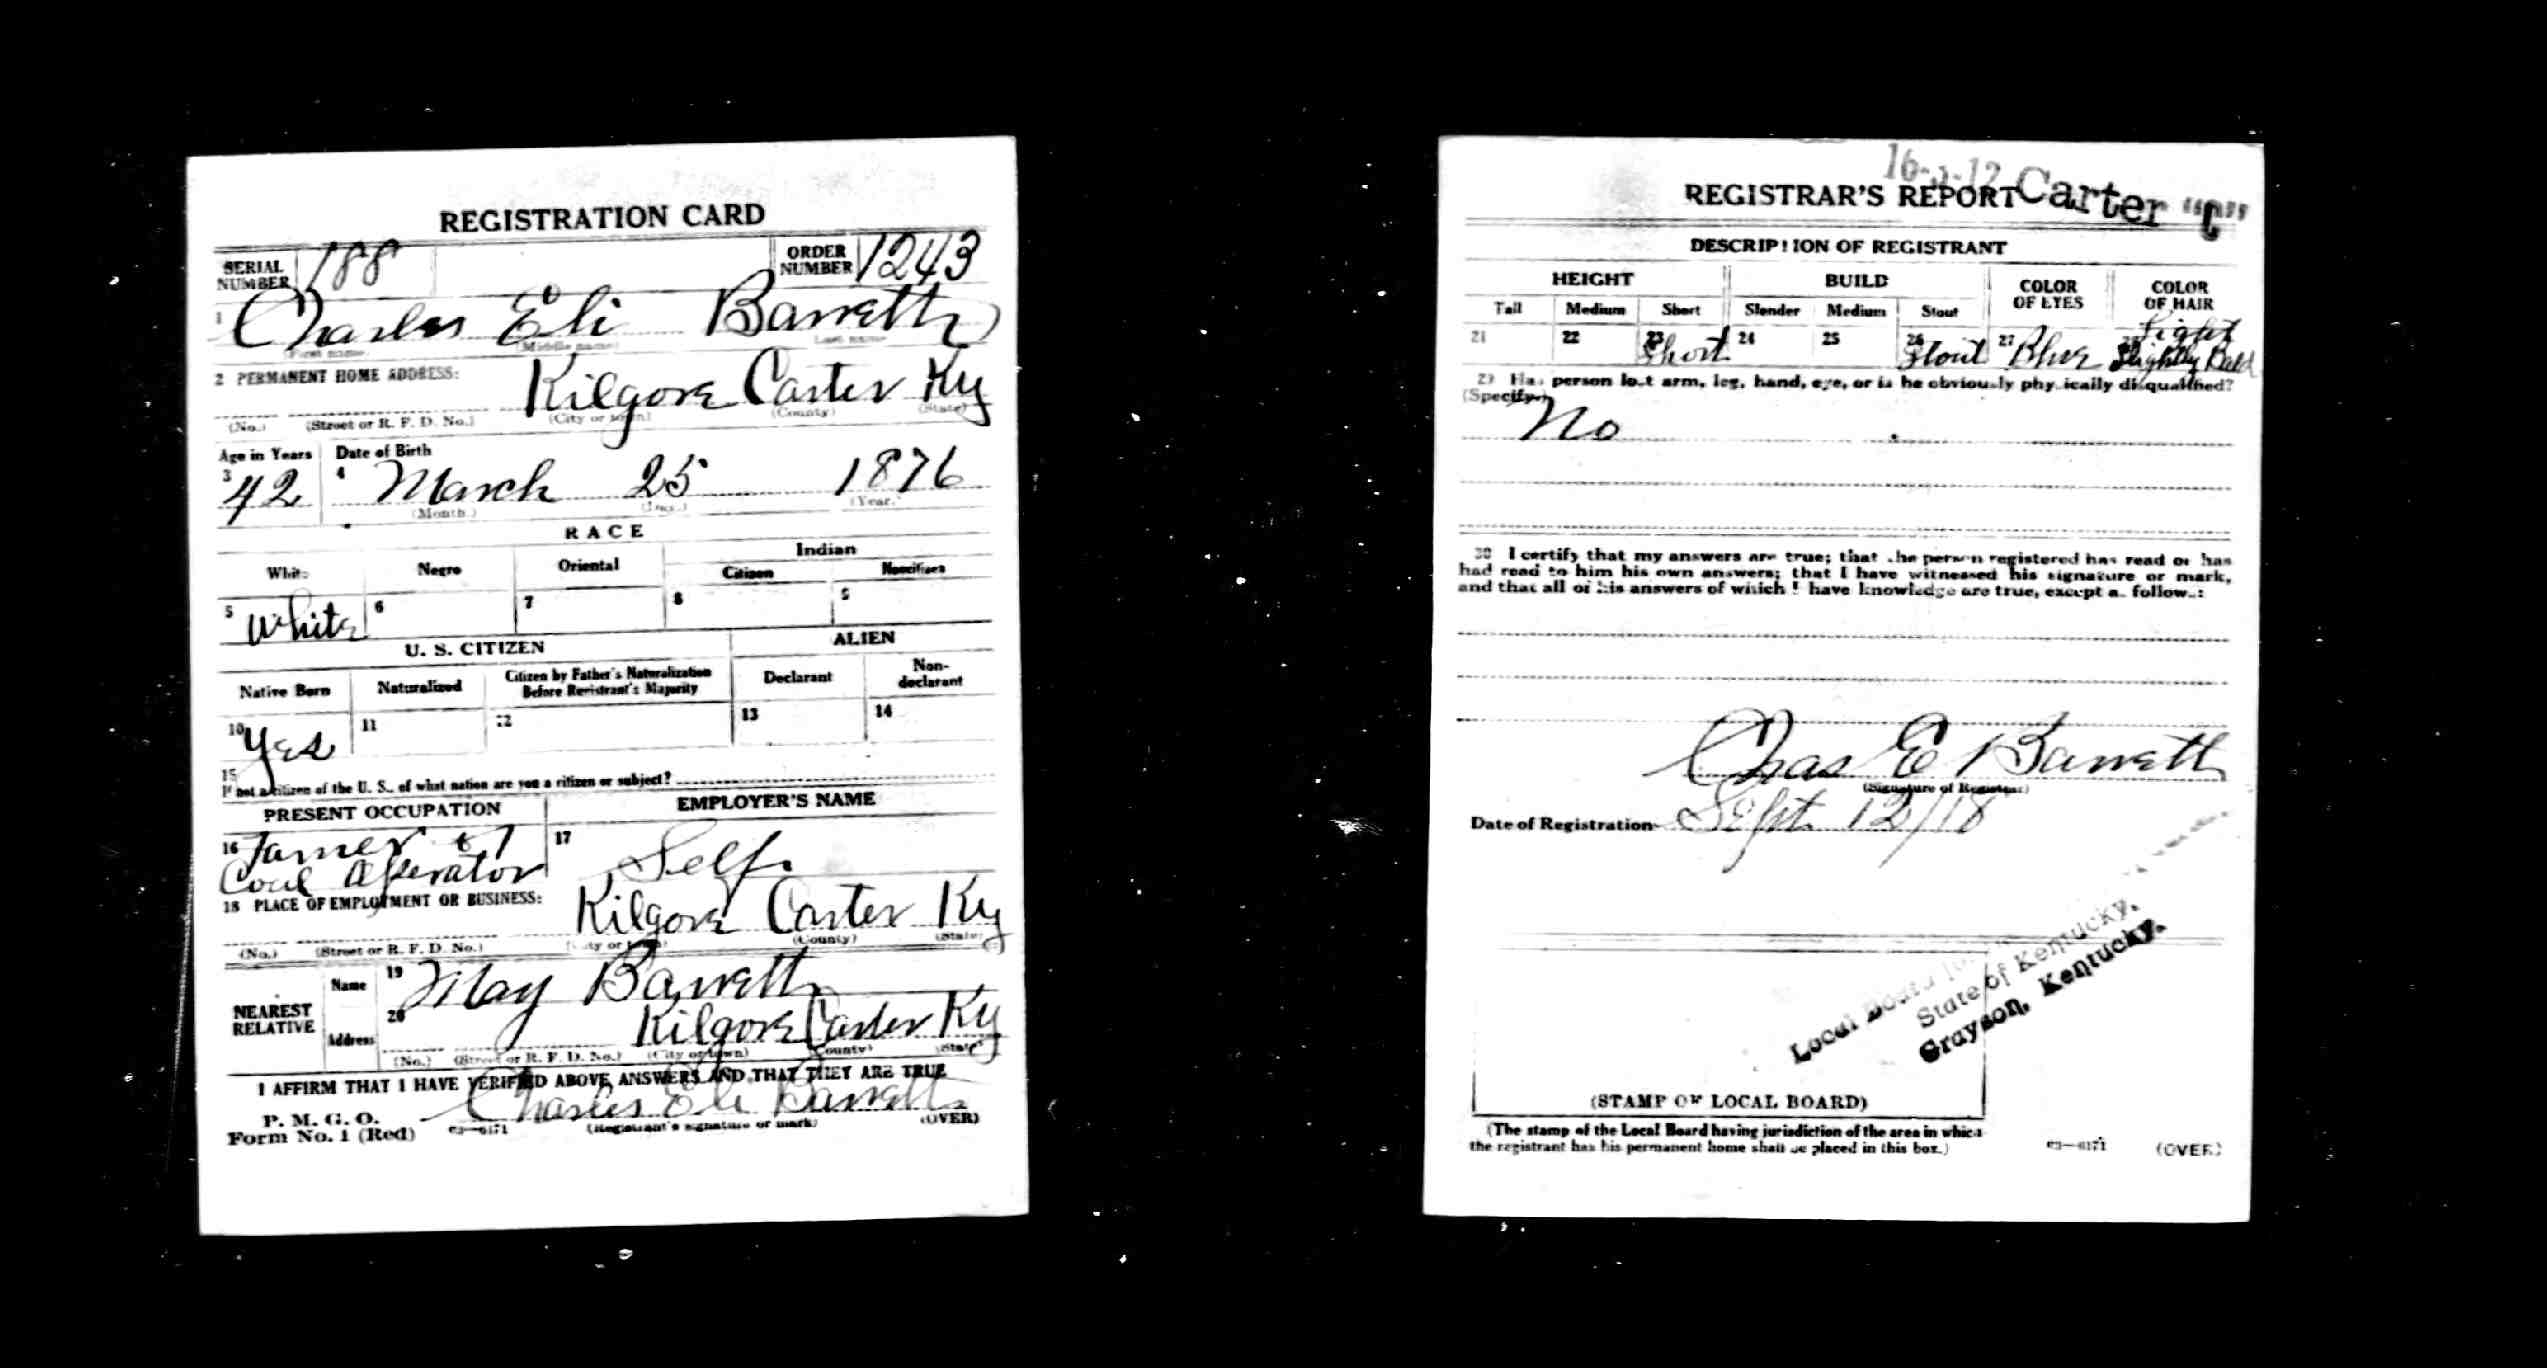 REGISTRATION CARD
SERIAL NUMBER 188 ORDER NUMBER 1243
1 Charles Eli Barrett
(First name) (Middle name) Last name
2 PERMANENT HOME ADDRESS:
Kilgore Carter Ky
(No.) (Street or R. F. D. No.) (City or town) (County) (State)
Age in Years Date of Birth
3 42 4 March 25 1876
(Month.) (Day.) (Year.
RACE
White Negro Oriental Indian
Citizen Noncitizen
5 White 6 7 8 9
U. S. CITIZEN ALIEN
Native Born Naturalized Citizen by Father's Naturalization Before Registrant's Majority Declarant Non-declarant
10 Yes 11 12 13 14
15
If not a citizen of the U. S., of what nation are you a citizen or subject?
PRESENT OCCUPATION EMPLOYER'S NAME
16 Farmer & 17 Self
Coal Operator
18 PLACE OF EMPLOYMENT OR BUSINESS:
Kilgore Carter Ky
(No.) (Street or R. F. D. No.) (City or town) (County) (State)
NEAREST RELATIVE
Name 19 May Barrett
Address 20 Kilgore Carter Ky
(No.) (Street or R. F. D. No.) (City or town) (County) (State)
I AFFIRM THAT I HAVE VERIFIED ABOVE ANSWERS AND THAT THEY ARE TRUE
P. M. G. O.
Form No. 1 (Red)
Charles Eli Barrett
03—6171 (Registrant's signature or mark) (OVER)
Carter "C"
REGISTRAR'S REPORT
DESCRIPTION OF REGISTRANT
HEIGHT BUILD COLOR OF EYES COLOR OF HAIR
Tall Medium Short Slender Medium Stout
21 22 23 Short 24 25 26 Stout 27 Blue 28 Light Slightly Bald
29 Has person lost arm, leg, hand, eye, or is he obviously physically disqualified?
(Specify.)
No
30 I certify that my answers are true; that the person registered has read or has
had read to him his own answers; that I have witnessed his signature or mark,
and that all of his answers of which I have knowledge are true, except as follows:
Chas E Barrett
(Signature of Registrar)
Date of Registration Sept 12/18
Local Board
State of Kentucky,
Grayson, Kentucky.
(STAMP OF LOCAL BOARD)
(The stamp of the Local Board having jurisdiction of the area in which
the registrant has his permanent home shall be placed in this box.)
03—6171 (OVER)